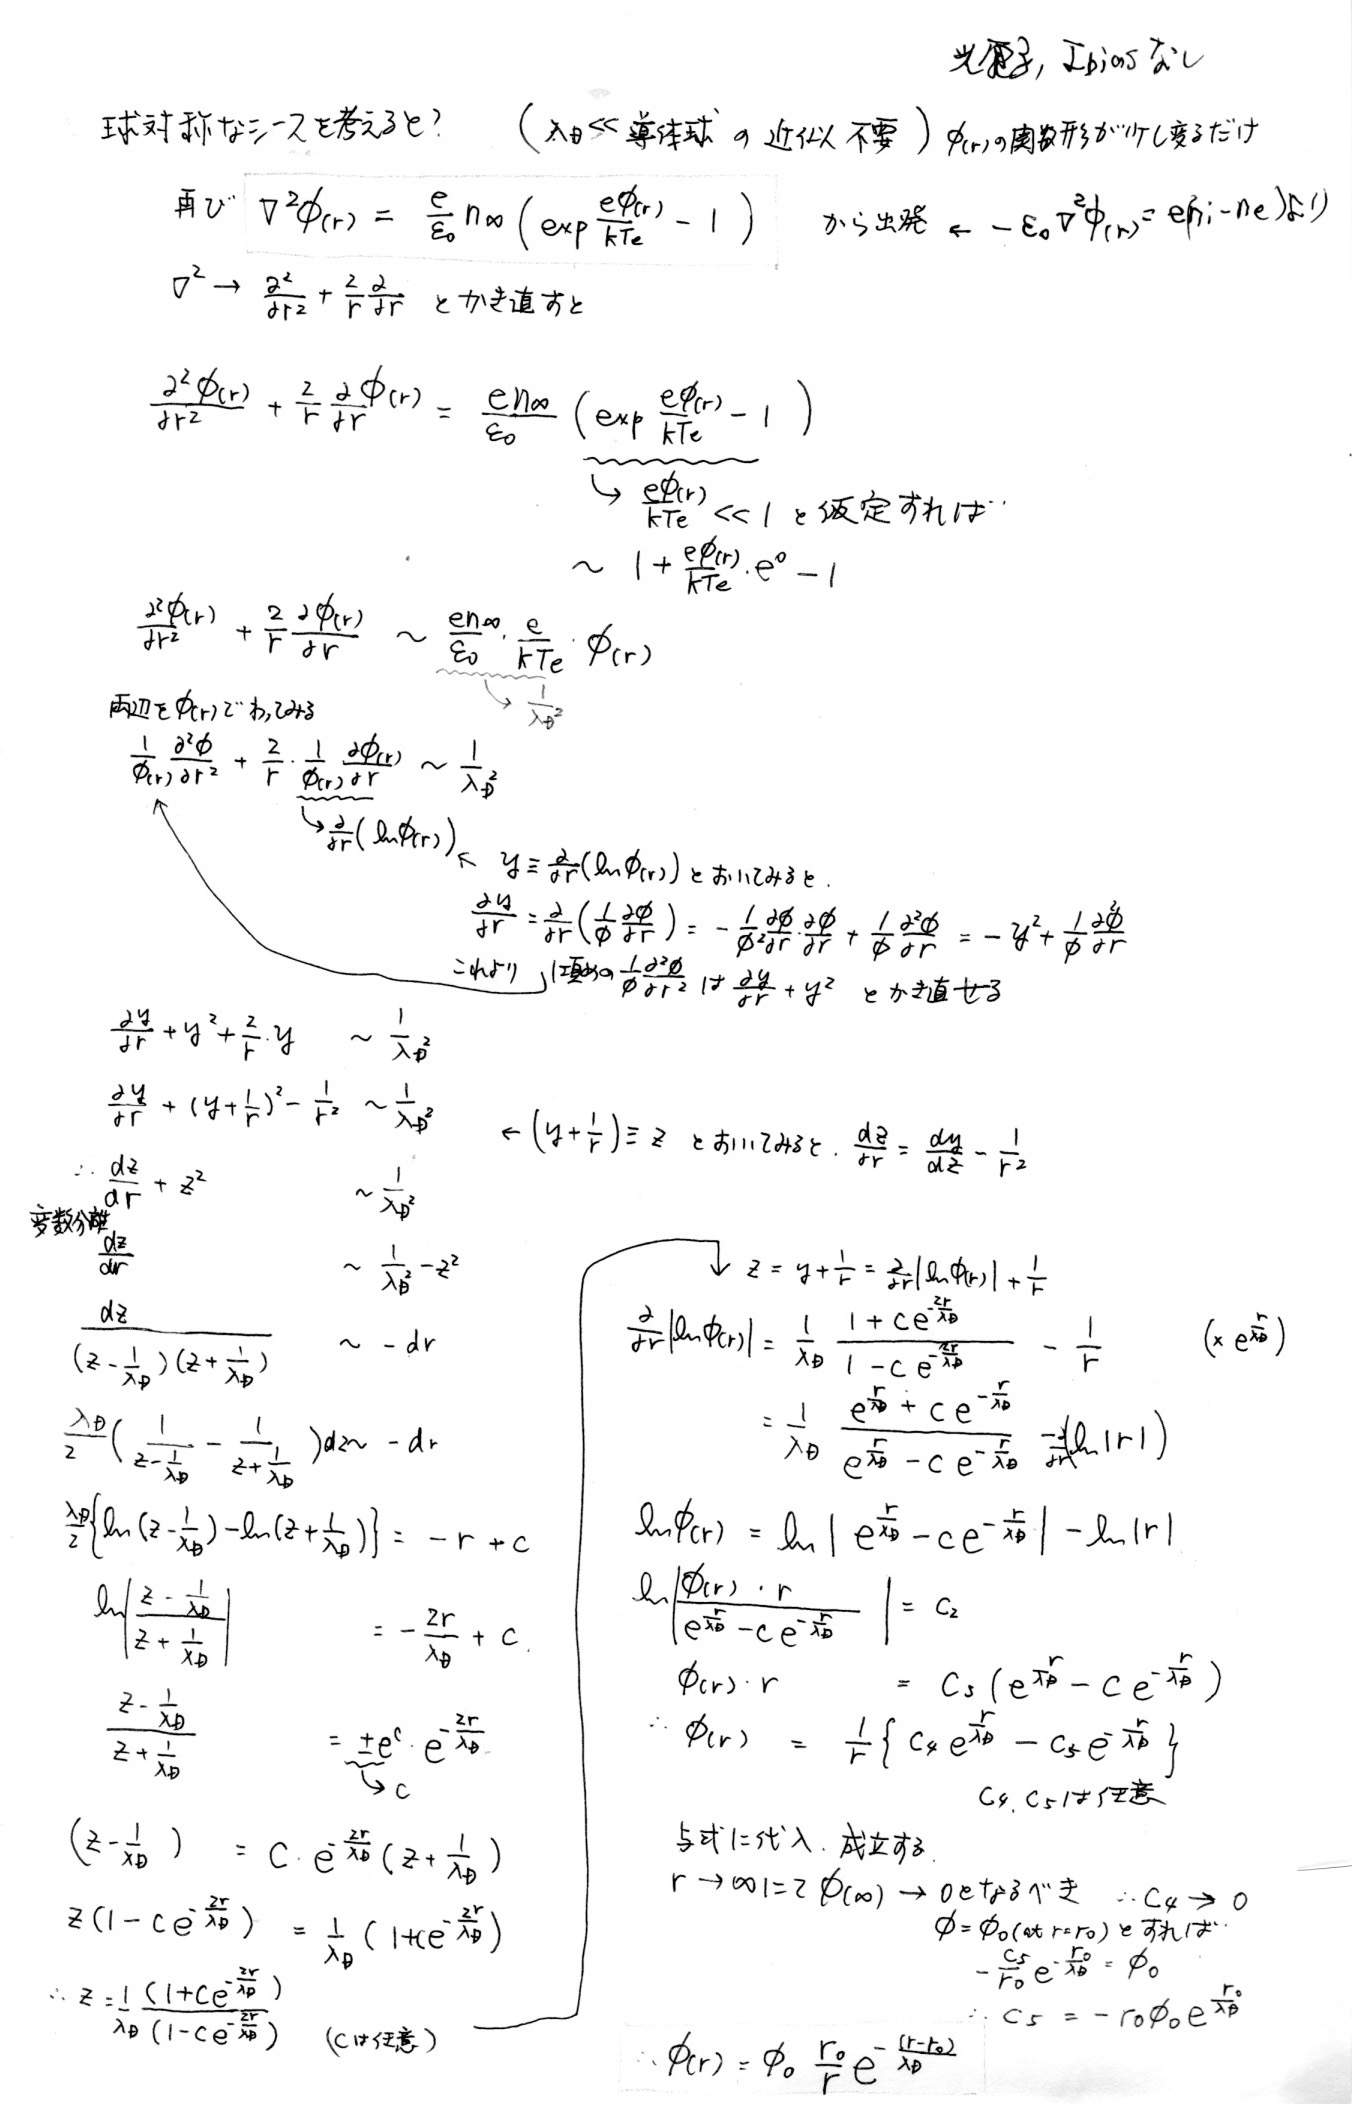 光電子, Ibiasなし
球対称なシースを考えると? (λD << 導体球 の 近似 不要) φ(r)の関数形が少し変るだけ
再び ∇²φ(r) = e/ε0 n∞ (exp eφ(r)/kTe - 1) から出発 ← -ε0∇²φ(r) = e(ni-ne)より
∇² → ∂²/∂r² + 2/r ∂/∂r とかき直すと
∂²φ(r)/∂r² + 2/r ∂/∂r φ(r) = en∞/ε0 (exp eφ(r)/kTe - 1)
↳ eφ(r)/kTe << 1 と仮定すれば‥
~ 1 + eφ(r)/kTe · e⁰ - 1
∂²φ(r)/∂r² + 2/r ∂φ(r)/∂r ~ en∞/ε0 · e/kTe · φ(r)
↳ 1/λD²
両辺をφ(r)でわってみる
1/φ(r) ∂²φ/∂r² + 2/r · 1/φ(r) ∂φ(r)/∂r ~ 1/λD²
↳ ∂/∂r (lnφ(r)) ← y ≡ ∂/∂r (lnφ(r)) とおいてみると.
∂y/∂r = ∂/∂r (1/φ ∂φ/∂r) = - 1/φ² ∂φ/∂r · ∂φ/∂r + 1/φ ∂²φ/∂r = - y² + 1/φ ∂²φ/∂r
これより 1項めの 1/φ ∂²φ/∂r² は ∂y/∂r + y² とかき直せる
∂y/∂r + y² + 2/r · y ~ 1/λD²
∂y/∂r + (y + 1/r)² - 1/r² ~ 1/λD²
← (y + 1/r) ≡ z とおいてみると. dz/dr = dy/dz - 1/r²
∴ dz/dr + z² ~ 1/λD²
変数分離
dz/dr ~ 1/λD² - z²
dz/((z - 1/λD)(z + 1/λD)) ~ - dr
λD/2 (1/(z - 1/λD) - 1/(z + 1/λD)) dz ~ - dr
λD/2 {ln(z - 1/λD) - ln(z + 1/λD)} = - r + c
ln|(z - 1/λD)/(z + 1/λD)| = - 2r/λD + c.
(z - 1/λD)/(z + 1/λD) = ±e^c · e^(-2r/λD)
↳ c
(z - 1/λD) = C · e^(-2r/λD) (z + 1/λD)
z(1 - ce^(-2r/λD)) = 1/λD (1+ce^(-2r/λD))
∴ z = 1/λD (1+ce^(-2r/λD))/(1-ce^(-2r/λD)) (cは任意)
z = y + 1/r = ∂/∂r |lnφ(r)| + 1/r
∂/∂r |lnφ(r)| = 1/λD (1 + ce^(-2r/λD))/(1 - ce^(-2r/λD)) - 1/r (× e^(r/λD))
= 1/λD (e^(r/λD) + ce^(-r/λD))/(e^(r/λD) - ce^(-r/λD)) - ∂/∂r (ln|r|)
lnφ(r) = ln|e^(r/λD) - ce^(-r/λD)| - ln|r|
ln|φ(r) · r/(e^(r/λD) - ce^(-r/λD))| = c2
φ(r) · r = C3 (e^(r/λD) - ce^(-r/λD))
∴ φ(r) = 1/r {C4 e^(r/λD) - C5 e^(-r/λD)}
C4, C5は任意
与式に代入. 成立する.
r → ∞にて φ(∞) → 0となるべき ∴ C4 → 0
φ = φ0 (at r=r0) とすれば‥
- C5/r0 e^(-r0/λD) = φ0
∴ C5 = - r0φ0e^(r0/λD)
∴ φ(r) = φ0 r0/r e^(-(r-r0)/λD)